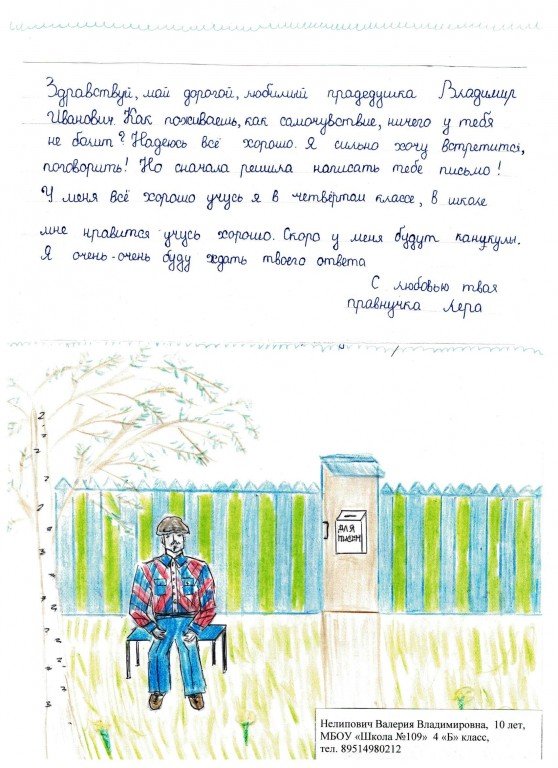 Здравствуй, мой дорогой, любимый прадедушка Владимир
Иванович. Как поживаешь, как самочувствие, ничего у тебя
не болит? Надеюсь всё хорошо. Я сильно хочу встретится,
поговорить! Но сначала решила написать тебе письмо!
У меня всё хорошо учусь я в четвёртом классе, в школе
мне нравится учусь хорошо. Скоро у меня будут каникулы.
Я очень-очень буду ждать твоего ответа
С любовью твая
правнучка Лера
для
писем
Нелипович Валерия Владимировна, 10 лет,
МБОУ «Школа №109» 4 «Б» класс,
тел. 89514980212